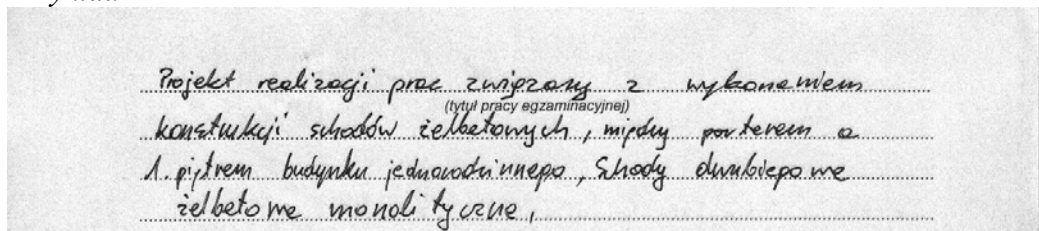 Projekt realizacji prac związany z wykonaniem
(tytuł pracy egzaminacyjnej)
konstrukcji schodów żelbetowych, między parterem a
1. piętrem budynku jednorodzinnego, Schody dwubiegowe
żelbetowe monolityczne,